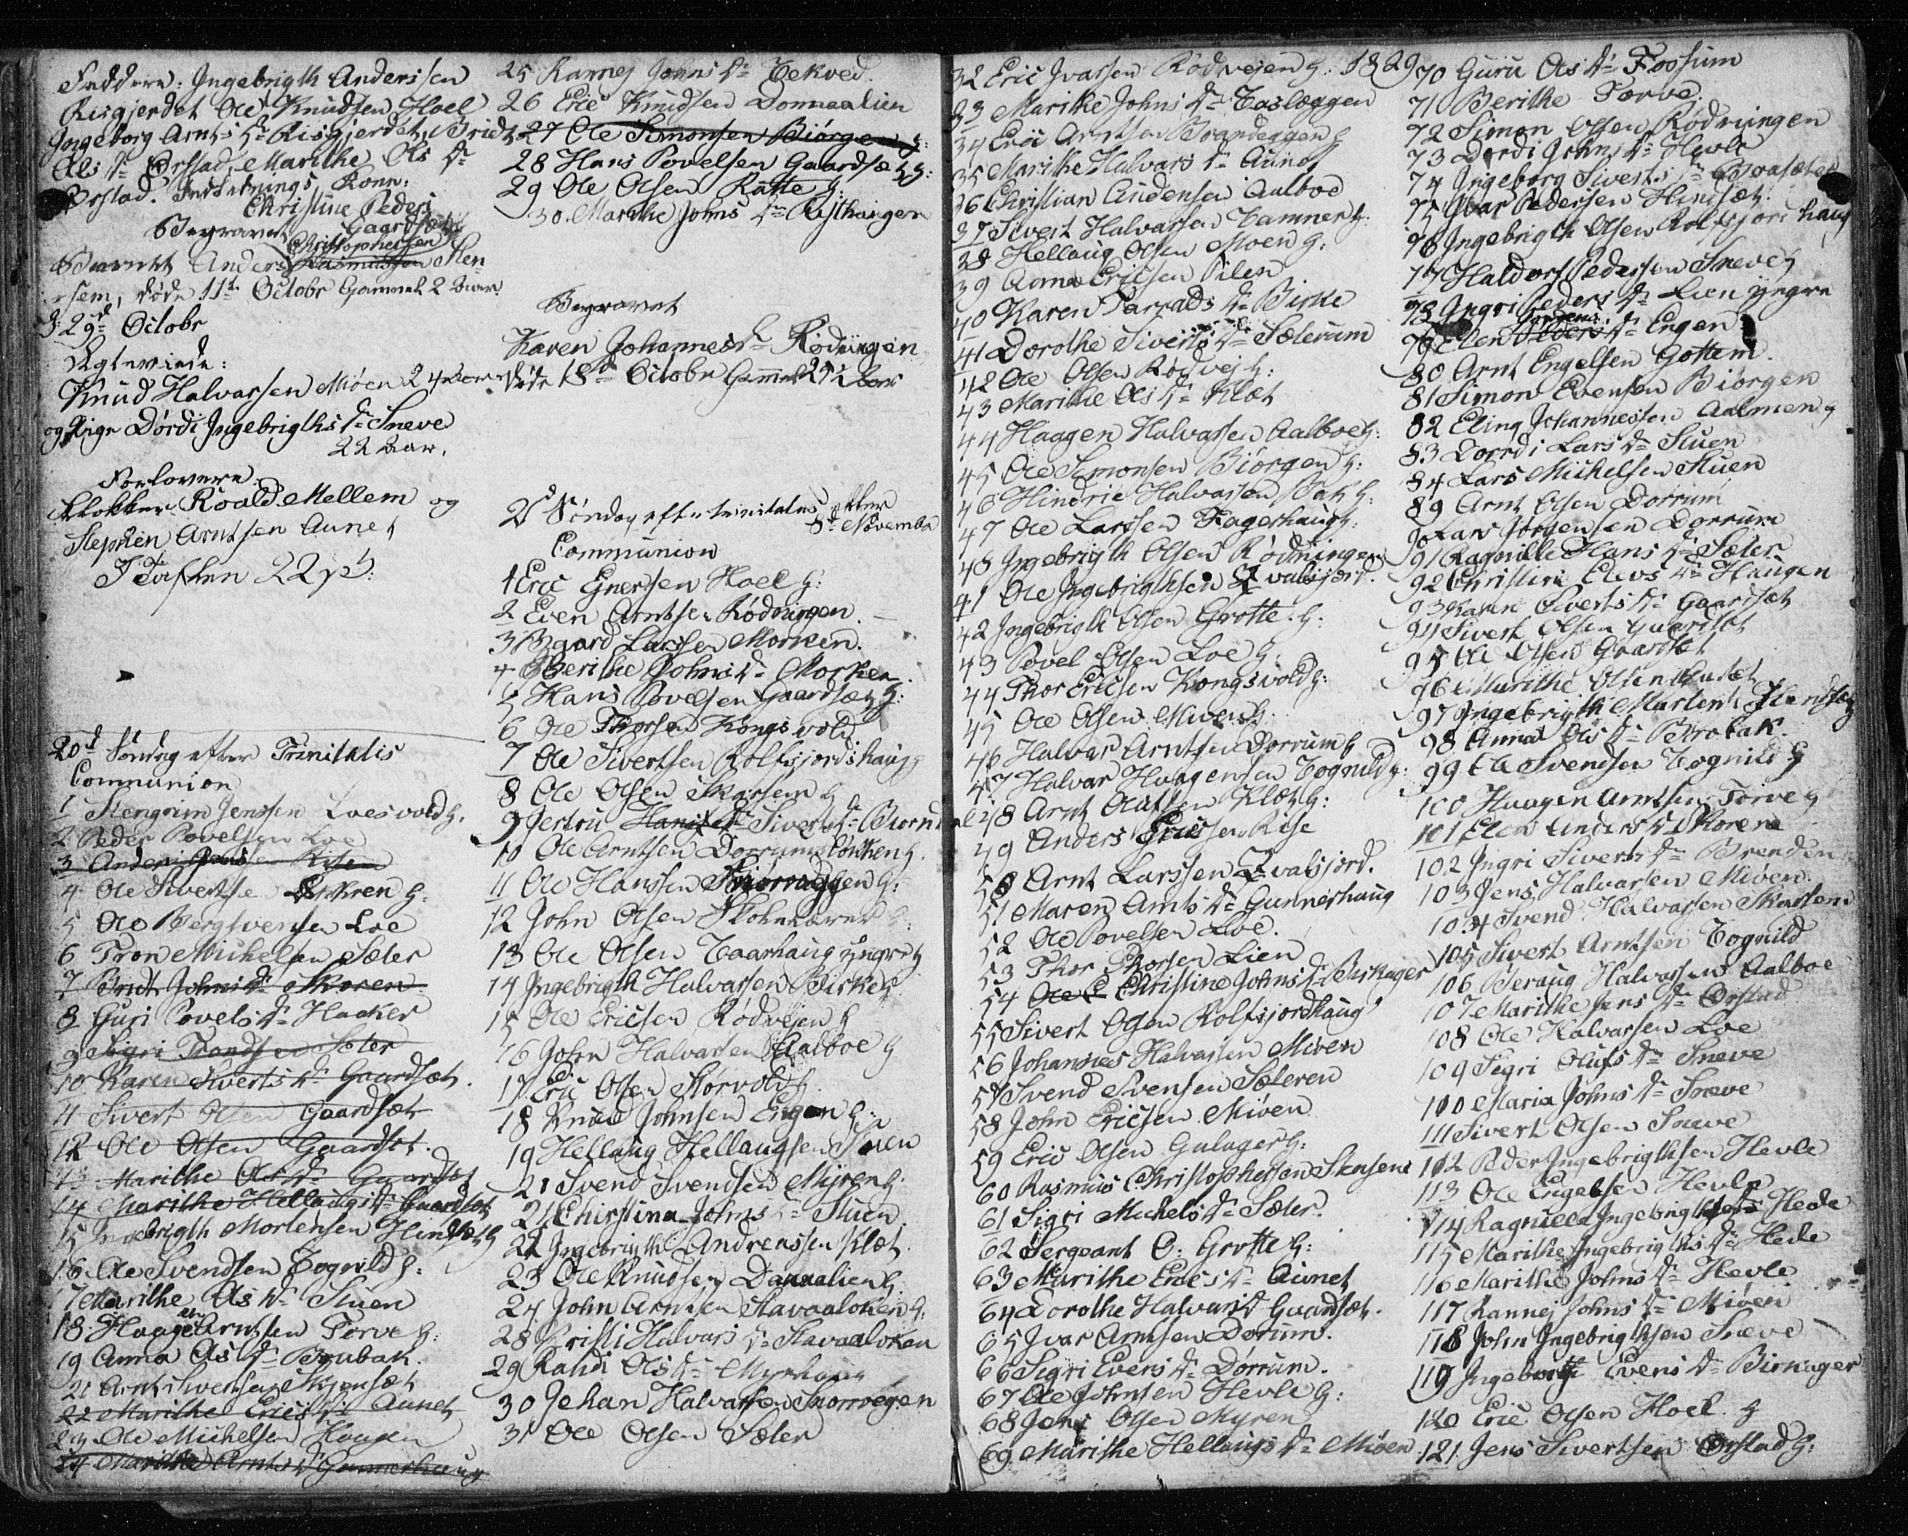 Faddere: Ingebrigth Anderssen
Risgjerdet Ole Knudsen Hoel
Ingeborg Arnts Dr Risgjerdet, Bridt
Ols Dr Ørstad, Marithe Ols Dr
Ørstad. Indlednings Kone:
Christine Peders
Gaardsæt
Begravet
Christophersen
Anders Rasmussen Sten-
sem, døde 11te Octobr Gammel 2 Aar
d: 29d Octobr
Ægteviede:
Knud Halvarsen Miøen 24 Aar
og Pige Dørdi Ingebrigths Dr Sneve
22 Aar.
Forlovere:
Klokker Roald Mellem og
Stephen Arntsen Aunet
I Taflen 22
20d Søndag efter Trinitatis
Communion
1 Stengrim Jenssen Loesvold g.
2 Peder Povelsen Loe
3 Anders Rise
4 Ole Sivertse g.
5 Ole Bergsvensen Loe
6 Tron Michelsen Sæter
7 Bridt Johns Dr Skoren
8 Guri Povels Dr Hacker
9 Sigri Trondsen Sæter
10 Karen Siverts Dr Gaardsæt.
11 Sivert Olsen Gaardsæt
12 Ole Olsen Gaardsæt.
13 Marithe Ols Dr Gaardsæt
14 Marithe Hellaugs Dr Gaardsæt
15 Ingebrigth Mortensen Hindsæt g
16 Ole Svendsen Tognild g:
17 Marithe Ols Dr Stuen
18 Haagen Arntsen Torve g:
19 Anna Ols Dr Brubak.
21 Arnt Sivertsen Skjønsæt
22 Marithe Erics Dr Aunet
23 Ole Michelsen Haugen
24 Marithe Arnts Dr Gunnerhaug
25 Rannej Johns Dr Tekved.
26 Eric Knudsen Donnaalien
27 Ole Simonsen Biørgen g:
28 Hans Povelsen Gaardsæt g:
29 Ole Olsen Ratte g:
30. Marithe Johns Dr Rijthaugen
Begravet
Karen Johannes Dr Rødningen
døde 18de Octobr Gammel Aar
21d Søndag efter trinitatis eller
8d Novembr
Communion
1 Eric Enersen Hoel g:
2 Even Arntsen Rødningen.
3 Baard Larssen Morken.
4 Berithe Johns Dr Morken.
5 Hans Povelsen Gaardsæt g:
6 Ole Thorsen Kongsvold
7 Ole Sivertsen Rolfsjordshaug g
8 Ole Olsen Skarsem g
9 Jertru Hans Dr Siverts Dr Biørndal
10 Ole Arntsen Dorrumsløkken g.
11 Ole Hanssen Snorroggen g:
12 John Olsen g:
13 Ole Olsen Taarhaug yngre g
14 Ingebrigth Halvarsen Birke g
15 Ole Ericsen Rødvejen g
16 John Halvarsen Aalboe g
17 Eric Olsen Storvold g.
18 Knud Johnsen Engen g:
19 Hellaug Hellaugsen Stuen
21 Svend Svendsen Myren g:
21 Christina Johns Dr Stuen
22 Ingebrigth Andreassen Klæt.
23 Ole Knudsen Donnalien g:
24 John Arntsen Stavaaløken g:
28 Kristi Halvars Dr Stavaaløken
29 Randi Ols Dr Myrhaug
30 Johan Halvarsen Snorroegen
31 Ole Olsen Sæter
32 Eric Ivarsen Rødvejen g: 1829
33 Marithe Johns Dr Toslæggen
34 Eric Arntsen Brandeggen g
35 Marithe Halvars Dr Aunet
36 Christian Andensen Aalboe
37 Sivert Halvarsen Tamner g:
38 Hellaug Olsen Moen g:
39 Anna Ericsen Pilen
40 Karen Taralds Dr Birke
41 Dorothe Siverts Dr Sæterum
42 Ole Olsen Rødvej g:
43 Marithe Ols Dr Klæt
44 Haagen Halvarsen Aalboe g:
45 Ole Simonsen Biørgen g:
46 Hindric Halvarsen Bak g:
47 Ole Larssen Fagerhaug g:
48 Ingebrigth Olsen Rødningen
41 Ole Ingebrigthsen Qvalsjord.
42 Ingebrigth Olsen Grotte. g:
43 Povel Olsen Loe g:
44 Thor Ericsen Kongsvold g:
45 Ole Olsen Miøen g:
46 Halvar Arntsen Dorrum g
47 Halvar Haagensen Tognild g:
48 Arnt Olafsen Klæt g:
49 Anders Ericsen Rise
50 Arnt Larssen Qvalsjord.
51 Maren Arnts Dr Gunnerhaug
52 Ole Povelsen Loe.
53 Thor Thorsen Lien
54 Ole E Christine Johns Dr Birkager
55 Sivert Olsen Rolfsjordhaug
56 Johannes Halvarsen Miøen
57 Svend Svensen Sæteren
58 John Ericsen Miøen
59 Eric Olsen Gulager g:
60 Rasmus Christophersen Stensem
61 Sigri Michels Dr Sæter.
62 Sergeant O: Grotte g:
63 Marithe Erics Dr Aunet
64 Dorothe Halvars Dr Gaardsæt.
65 Ivar Arntsen Dørum.
66 Sigri Evens Dr Dørrum.
67 Ole Johnsen Hevle g:
68 Jens Olsen Myren
69 Marithe Hellaugs Dr Miøen
70 Guru Ols Dr Fossum
71 Berithe Torve
72 Simon Olsen Rødningen
73 Dordi Johns Dr Hevle
74 Ingeborg Siverts Dr
75 Ivar Pedersen Hindsæt.
76 Ingebrigth Olsen Rolfsjordshaug
77 Haldor Pedersen Sneve g
78 Ingri Peders Dr Lien yngre
79 Ellen Dr Engen
80 Arnt Engelsen Gottem.
81 Simon Evensen Biørgen
82 Eling Johannessen Aalmen g
83 Dorrdi Lars Dr Stuen
84 Lars Michelsen Stuen
89 Arnt Olsen Dorrum
90 Lars Jørgensen Dorrum
91 Ragnille Hans Dr Sæter
92 Christine Elevs Dr Haugen
93 Karen Siverts Dr Gaardsæt
94 Sivert Olsen Gaardsæt
95 Ole Olsen Gaardsæt
96 Marithe Olsen
97 Ingebrigth Mortens Hindsæt g
98 Anna Ols Dr Brobak.
99 Ole Svendsen Tognild g
100 Haagen Arntsen Torve g
101 Elen Anders Dr Skorem
102 Ingri Siverts Dr Brenden
103 Jens Halvarsen Miøen.
104 Svend Halvarsen Skarsem
105 Sivert Arntsen Tognild
106 Beraug Halvarsen Aalboe
107 Marithe Jens Dr Ørstad
108 Ole Halvarsen Loe
109 Sigri Olufs Dr Sneve
110 Maria Johns Dr Sneve
111 Sivert Olsen Sneve
112 Peder Ingebrigthsen Hevle
113 Ole Engelsen Hevle
114 Ragnilla Ingebrigths Hede
115 Marithe Ingebrigths Dr Hede
116 Marithe Johns Dr Hevle
117 Rannej Johns Dr Miøen
118 John Ingebrigthsen Sneve
119 Ingeborg Evens Dr Birkager
120 Eric Olsen Hoel. g
121. Jens Sivertsen Ørstad g: